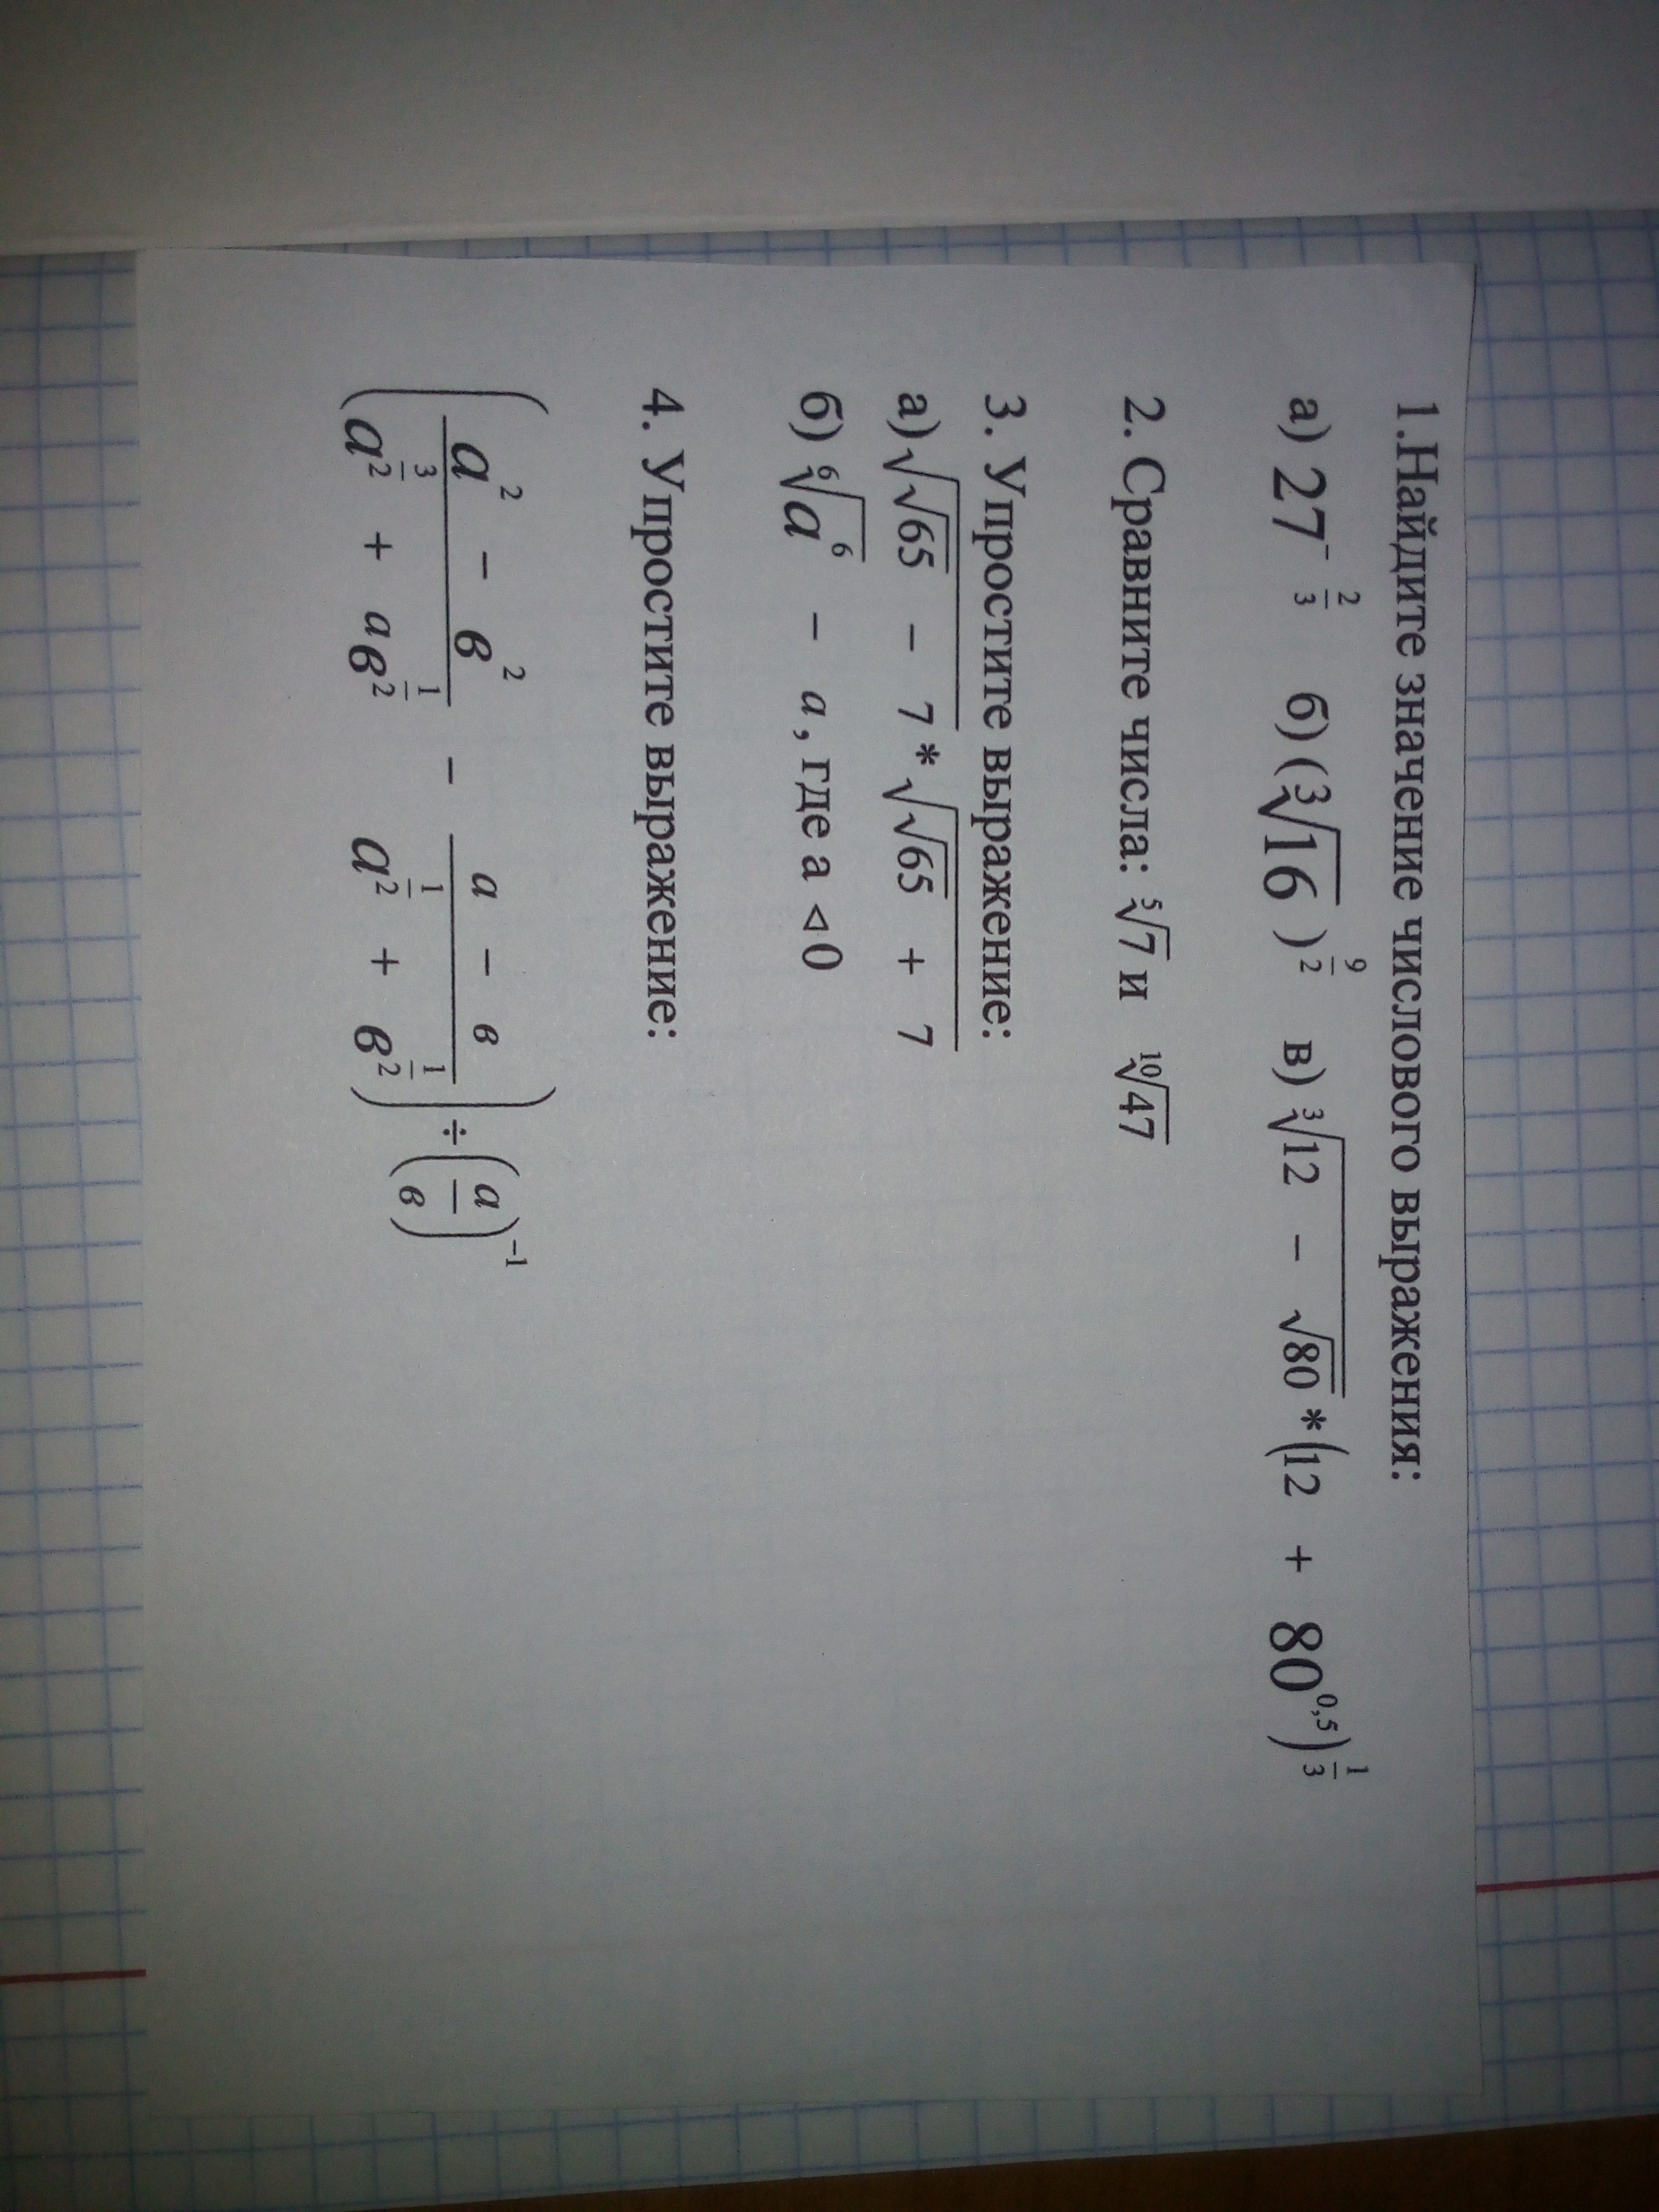 1.Найдите значение числового выражения:
а) 27^{-\frac{2}{3}} б) (\sqrt[3]{16})^{\frac{9}{2}} в) \sqrt[3]{12 - \sqrt{80}} * (12 + 80^{0,5})^{\frac{1}{3}}
2. Сравните числа: \sqrt[5]{7} и \sqrt[10]{47}
3. Упростите выражение:
а) \sqrt{\sqrt{65} - 7} * \sqrt{\sqrt{65} + 7}
б) \sqrt[6]{a^6} - a, где а ⊲ 0
4. Упростите выражение:
\left(\frac{a^2 - в^2}{a^{\frac{3}{2}} + aв^{\frac{1}{2}}} - \frac{a - в}{a^{\frac{1}{2}} + в^{\frac{1}{2}}}\right) ÷ \left(\frac{a}{в}\right)^{-1}